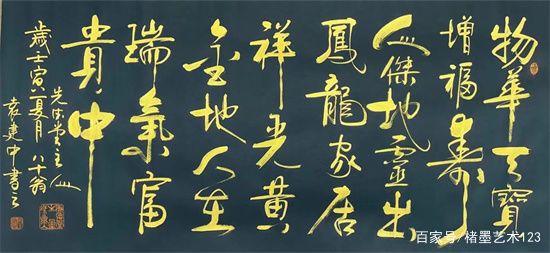 物華天寶
增福壽
人傑地靈出
鳳龍家居
祥光黃
金地人在
瑞氣富
貴中
歲壬寅夏月八十翁
袁建中書
百家号/楮墨艺术123